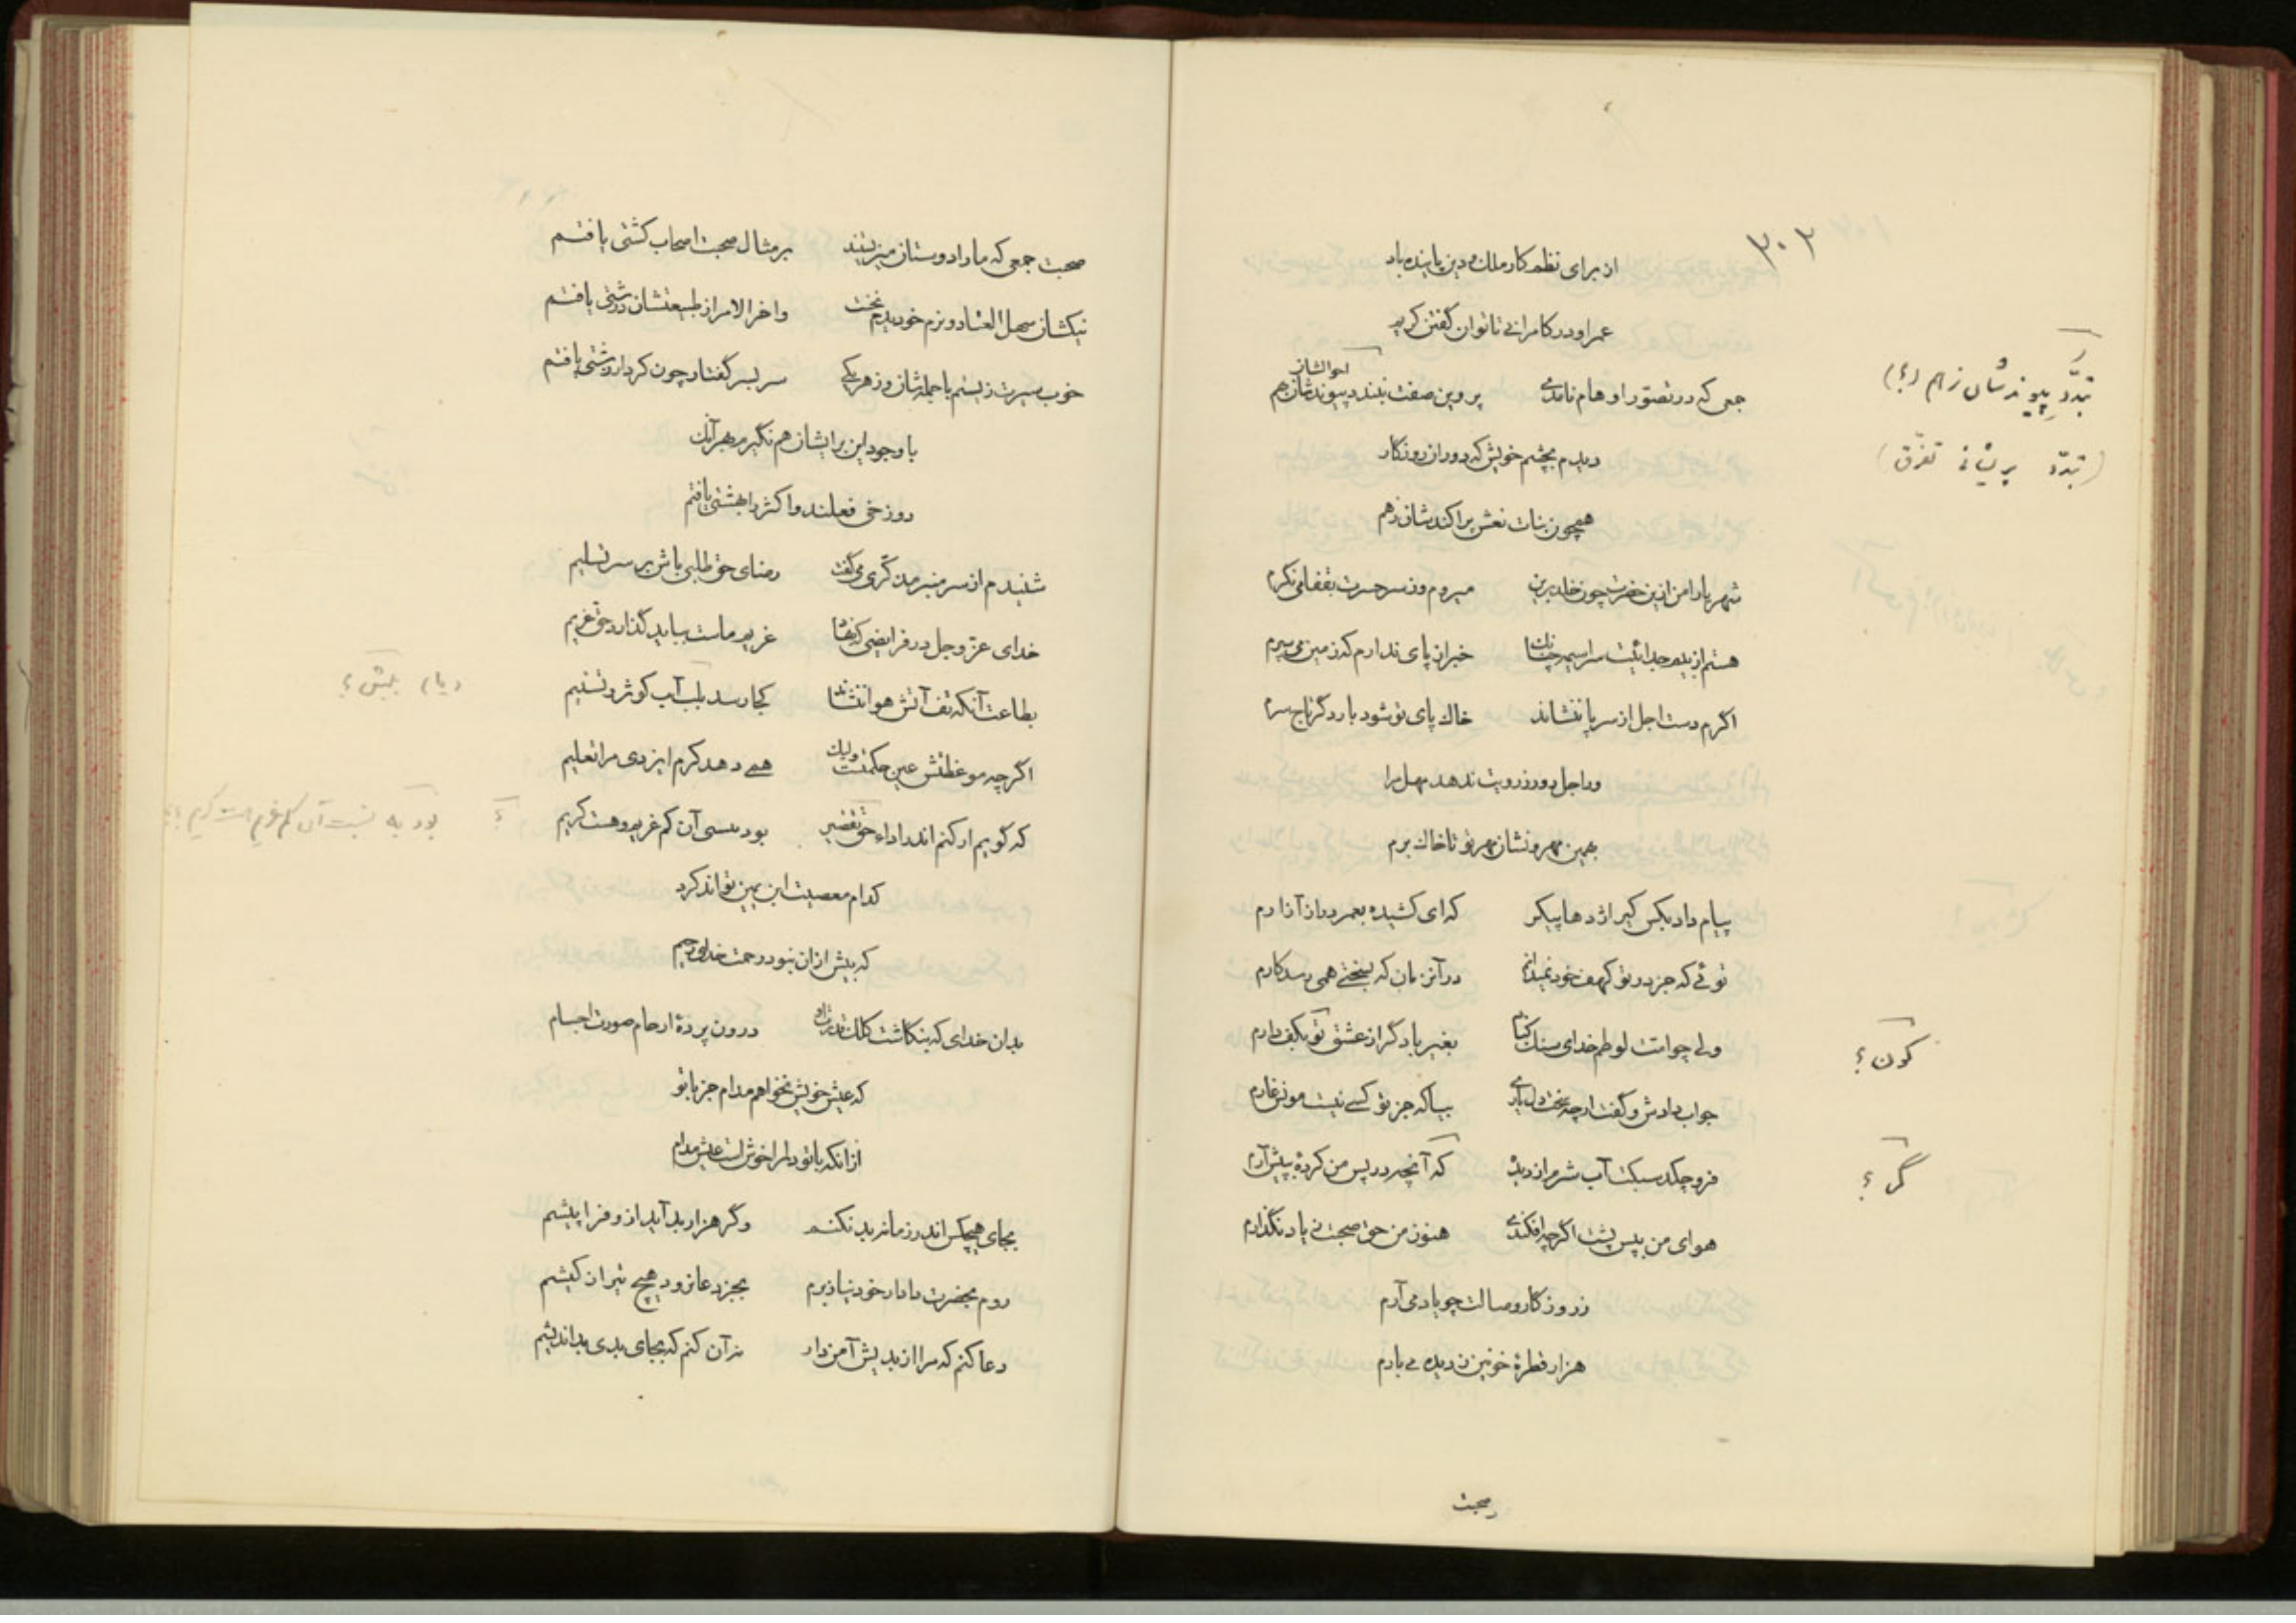 ۳۰۲
از برای نظم کار ملک و دین پاینده باد
عمر او در کامرانی تا توان گفتن کریم
احوالشان
جمعی که در تصور اوهام نامدی پروین صفت بنند پیوندشان زهم
تبدّد پیوندشان زهم (؟)
دیدم بچشم خویش که دوران روزگار
(تبدّد پریشانی تفرّق)
همچون بنات نعش پراکندشان زهم
شهریارا من ازین حضرت چون خلد برین میروم وز سر حسرت بقفا می نگرم
هستم از بیم جدائیت سراسیمه چنانک خبر از پای ندارم که زمین می سپرم
اگرم دست اجل از سر پا ننشاند خاک پای تو شود بار دگر تاج سرم
ور اجل دور ز رویت ندهد مهل مرا
بهمین مهر و نشان مهر تو تا خاک برم
پیام داد بکس کیر اژدها پیکر که ای کشیده بعمر دراز آزارم
توئی که جز در تو کهف خود نمیدانم در آنزمان که بسختی همی رسد کارم
ولی چو امت لوطم خدای سنک کناد بغیر باد گر از عشق تو بکف دارم
کون؟
جواب دادش و گفت ارچه سخت دل یاری بیا که جز تو کسی نیست مونس غارم
فرو چکد سبکت آب شرم از دیده که آنچه در پس من کردهٔ بپیش آرم
گر؟
هوای من بپس پشت اگرچه افکندی هنوز من حق صحبت ز یاد نگذارم
ز روزگار وصالت چو یاد می آرم
هزار قطرهٔ خونین ز دیده می بارم
صحبت
صحبت جمعی که ما را دوستان میزیستند بر مثال صحبت اصحاب کشتی یافتم
نیکشان سهل العناد و نرم خو دیدم نخست واخر الامر از طبیعتشان درشتی یافتم
خوب سیرت زیستم با جمله شان وز هر یکی سر بسر گفتار چون کردار زشتی یافتم
با وجود این بر ایشان هم نگیرم بهر آنک
دوزخی فعلند و اکثر را بهشتی یافتم
شنیدم از سر منبر مذکّری میگفت رضای حق طلبی باش بر سر تسلیم
خدای عزّ و جل در فرایضی که غریم ماست بباید گذارد حق غریم
بطاعت آنکه تف آتش هوا ننشاند کجا رسد بلب آب کوثر و تسنیم
بلبش؟
اگرچه موعظتش عین حکمتست ولیک همی دهد کرم ایزدی مرا تعلیم
که گویم ار کنم اندر اداء حق تقصیر بود بسی آن کم غریم هست کریم
بود به نسبت آن کم غریم هست کریم؟
کدام معصیت ابن یمین تواند کرد
که بیش از آن نبود رحمت خدای رحیم
بدان خدای که بنگاشت کلک قدرت او درون پردهٔ ارحام صورت اجسام
که عیش خویش نخواهم مدام جز با تو
از آنکه با تو دلم را خوش است عیش مدام
بجای هیچکس اندر زمانه بد نکنم وگر هزار بد آید از و فرا پیشم
روم بحضرت دادار خود نیاز برم بجز دعا نرود هیچ تیر از کیشم
دعا کنم که مرا از بدیش آمن دار نه آن کنم که بجای بدی بد اندیشم